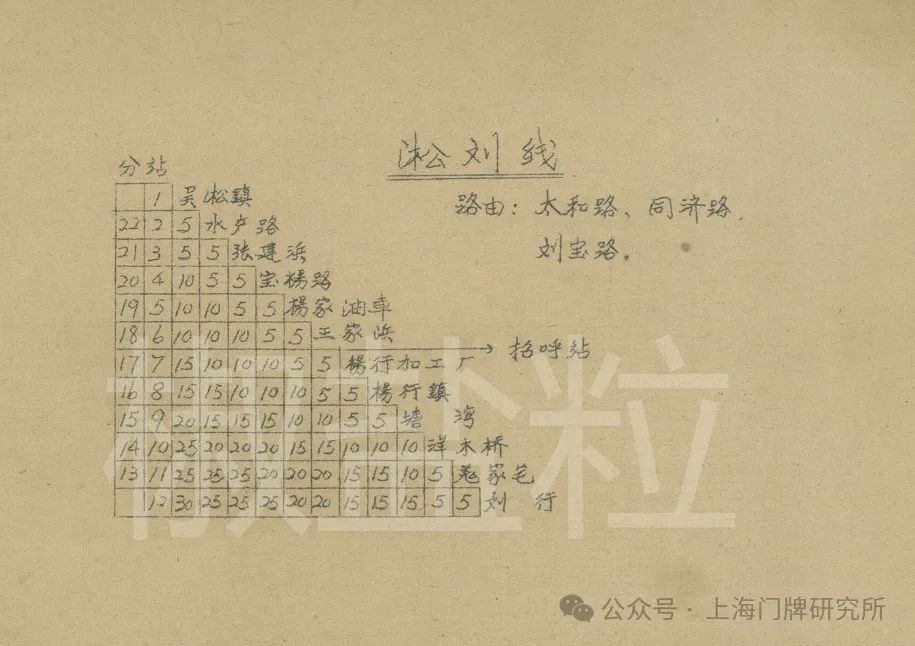 淞刘线
路由：太和路、同济路、
刘宝路。
分站
1 吴淞鎮
22 2 5 水产路
21 3 5 5 张建浜
20 4 10 5 5 宝楊路
19 5 10 10 5 5 楊家油車
18 6 10 10 10 5 5 王家浜
17 7 15 10 10 10 5 5 楊行加工厂 → 招呼站
16 8 15 15 10 10 10 5 5 楊行鎮
15 9 20 15 15 15 10 10 5 5 塘湾
14 10 25 20 20 20 15 15 10 10 10 洋木桥
13 11 25 25 25 20 20 20 15 15 10 5 家宅
12 30 25 25 25 20 20 15 15 15 5 5 刘行
盐粒
公众号·上海门牌研究所